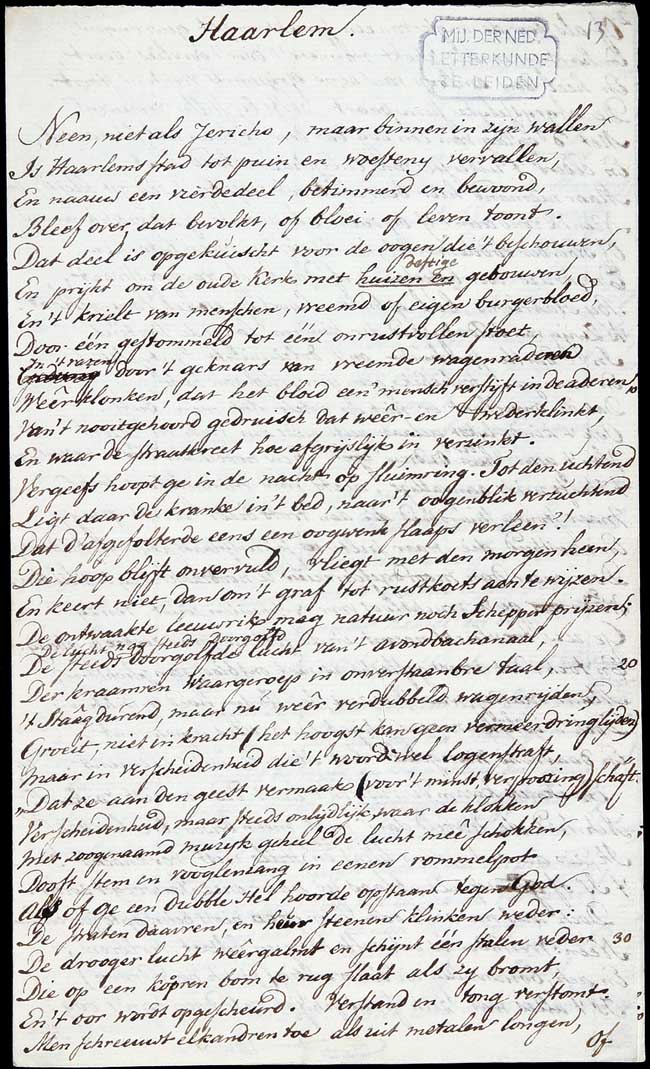 Haarlem.
13
MIJ. DER NED.
LETTERKUNDE
TE LEIDEN
Neen, niet als Jericho, maar binnen in zijn wallen
Is Haarlems stad tot puin en woesteny vervallen,
En naauw een vierdedeel, betimmerd en bewoond,
Bleef over, dat bevolkt, of bloei of leven toont.
Dat deel is opgekuischt voor de oogen die 't beschouwen,
deftige
En prijkt om de oude Kerk met huizen en gebouwen,
En 't krielt van menschen, vreemd of eigen burgerbloed,
Door-één gestommeld tot één onrustvollen stoet,
In 't razen
door 't geknars van vreemde wagenraderen
Weêrklonken, dat het bloed een' mensch verstijft in de aderen 10
Van 't nooitgehoord gedruisch dat weêr- en wederklinkt,
En waar de straatkreet hoe afgrijslijk in verzinkt.
Vergeefs hoopt ge in de nacht op sluimring. Tot den uchtend
Ligt daar de kranke in 't bed, naar 't oogenblik verzuchtend
Dat d'afgefolterde eens een oogwenk slaaps verleen'!
Die hoop blijft onvervuld, vliegt met den morgen heen,
En keert niet, dan om 't graf tot rustkoets aan te wijzen.
De ontwaakte leeuwrik mag natuur noch Schepper prijzen;
De lucht nog steeds doorgolfd
De steeds doorgolfde lucht van 't avondbachanaal,
Der kraamren waargeroep in onverstaanbre taal, 20
't Staâgdurend, maar nu weêr verdubbeld wagenrijden,
Groeit niet in kracht (het hoogst kan geen vermeerdring lijden)
Maar in verscheidenheid die 't woord wel logenstraft,
"Dat ze aan den geest vermaak (voor 't minst, verpoozing) schaft.
Verscheidenheid, maar steeds onlijdlijk, waar de klokken
Met zoogenaamd muzyk geheel de lucht meê schokken,
Dooft stem en vooglenzang in eenen rommelpot
Als of ge een dubble Hel hoorde opstaan tegen God.
De straten daavren, en heur steenen klinken weder:
De drooger lucht weêrgalmt en schijnt één stalen veder 30
Die op een kopren bom te rug slaat als zy bromt,
En 't oor wordt opgescheurd. Verstand en tong verstomt.
Men schreeuwt elkandren toe als uit metalen longen,
Of